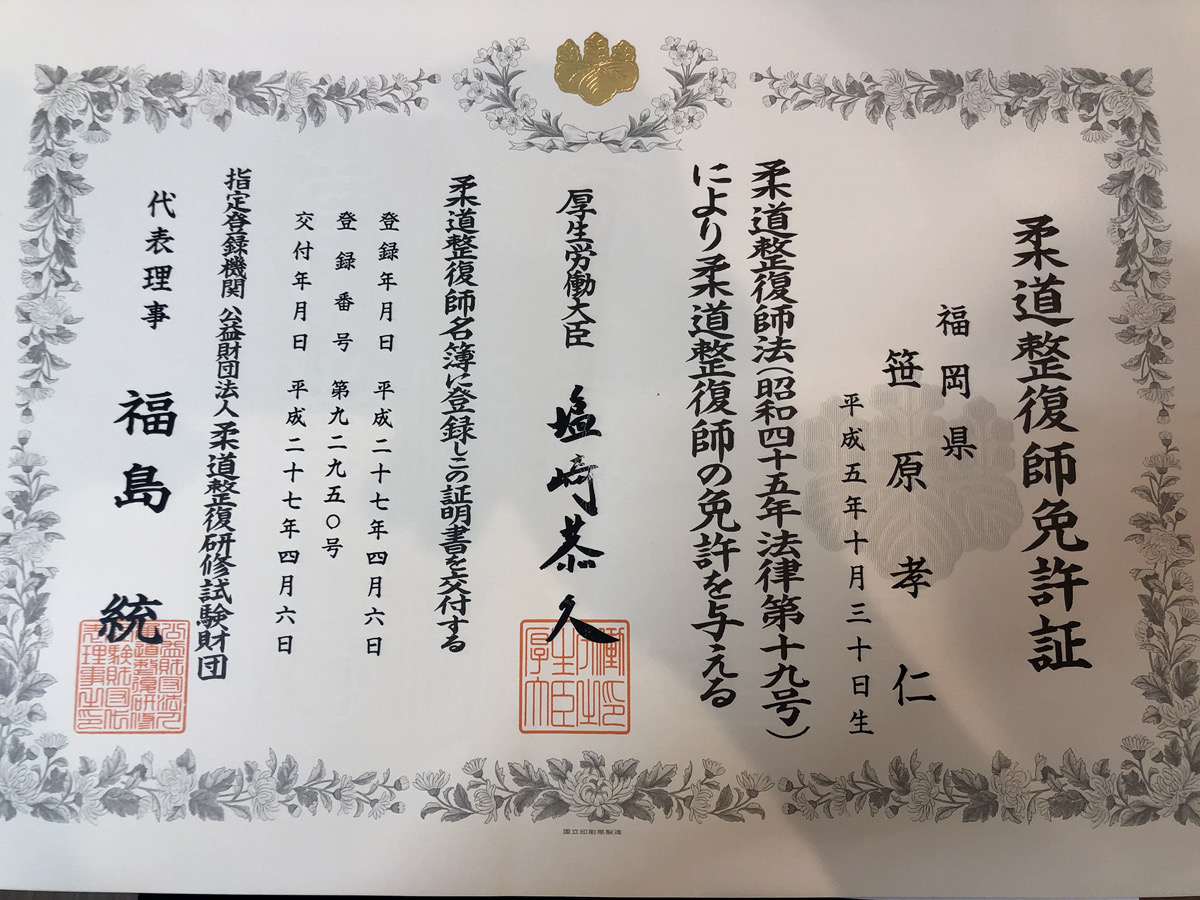 柔道整復師免許証
福岡県
笹原孝仁
平成五年十月三十日生
柔道整復師法(昭和四十五年法律第十九号)
により柔道整復師の免許を与える
厚生労働大臣 塩崎恭久
柔道整復師名簿に登録しこの証明書を交付する
登録年月日 平成二十七年四月六日
登録番号 第九二九五〇号
交付年月日 平成二十七年四月六日
指定登録機関 公益財団法人柔道整復研修試験財団
代表理事 福島統
国立印刷局製造